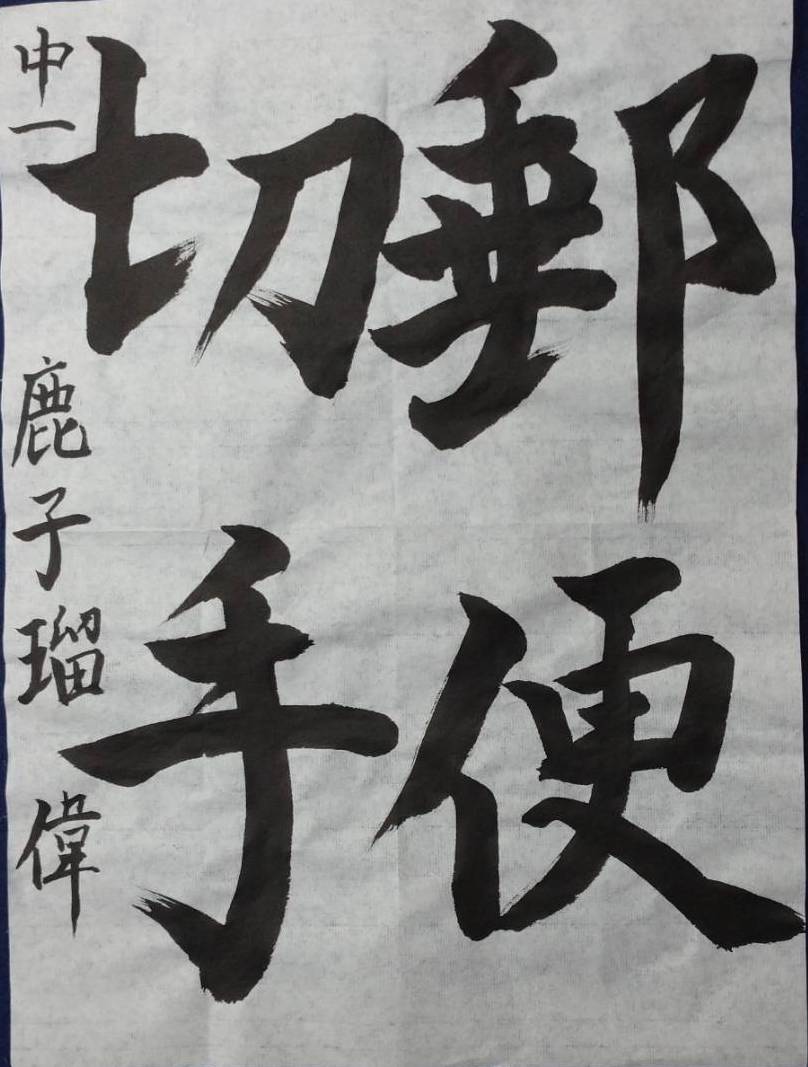 郵便
切手
中一 鹿子瑠 偉